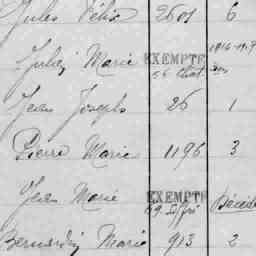 Jules Félix 2601 6
Julien Marie EXEMPTÉ 1916-1919
Jean Joseph 26 1
Pierre Marie 1196 3
Jean Marie EXEMPTÉ Décédé
Bernardin Marie 913 2